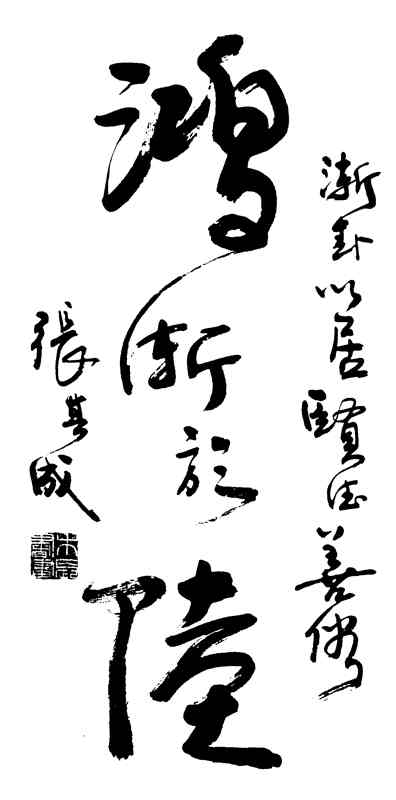 漸卦以居賢德善俗
鴻漸於陸
張其成